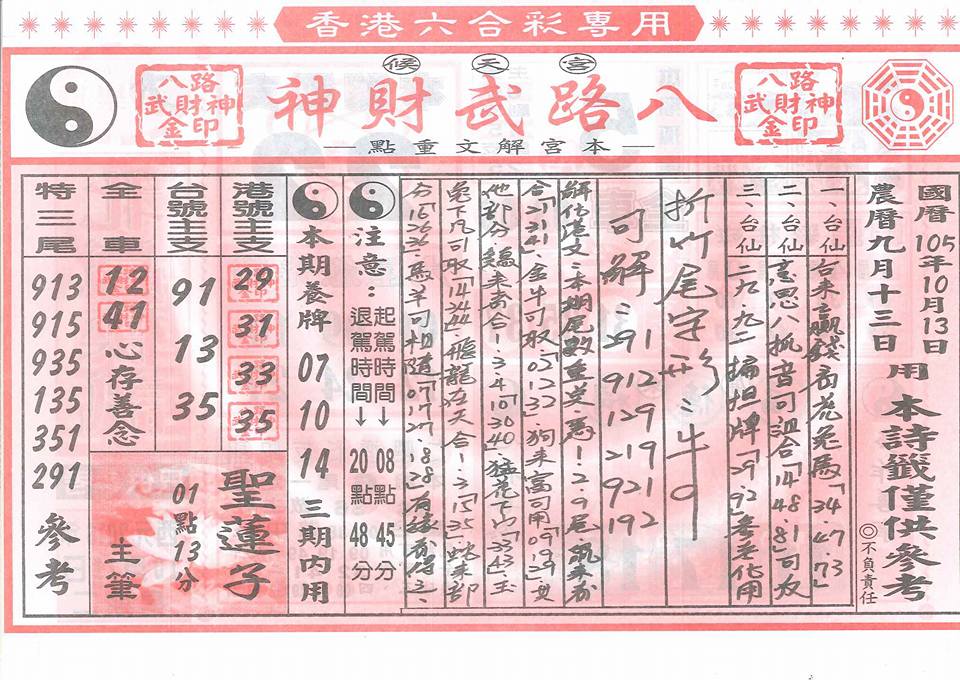 香港六合彩專用
宮天候
八路武財神
本宮解文重點
八路武財神金印
八路武財神金印
國曆105年10月13日
農曆九月十三日
用
本詩籤僅供參考
◎不負責任
一、台仙
二、台仙
三、台仙
台來贏錢
兔馬「34.47.73」
意思八
音可
合「14 48 81」可
二九.九二扁担牌「29 92參
用
折竹尾字形:牛9
可解:291
912
129
219
921
192
解化港文:本期尾數重
!2.9尾
合「21 41」金牛可取「02 12 32」狗來
可用「09 19 29」
合!3 4「10 30 40」猛虎下山「33 43」玉
兔下凡可取「14 34」飛龍在天合!3「15 35」蛇來部
分「16 26 36」馬羊可相隨「07 17 27.18 28有緣
注意:
起駕時間→08點45分
退駕時間→20點48分
本期養牌
07
10
14
三期內用
港號主支
29
31
33
35
台號主支
91
13
35
全車
12
41
心存善念
特三尾
913
915
935
135
351
291
參考
聖蓮子
01點13分
主筆